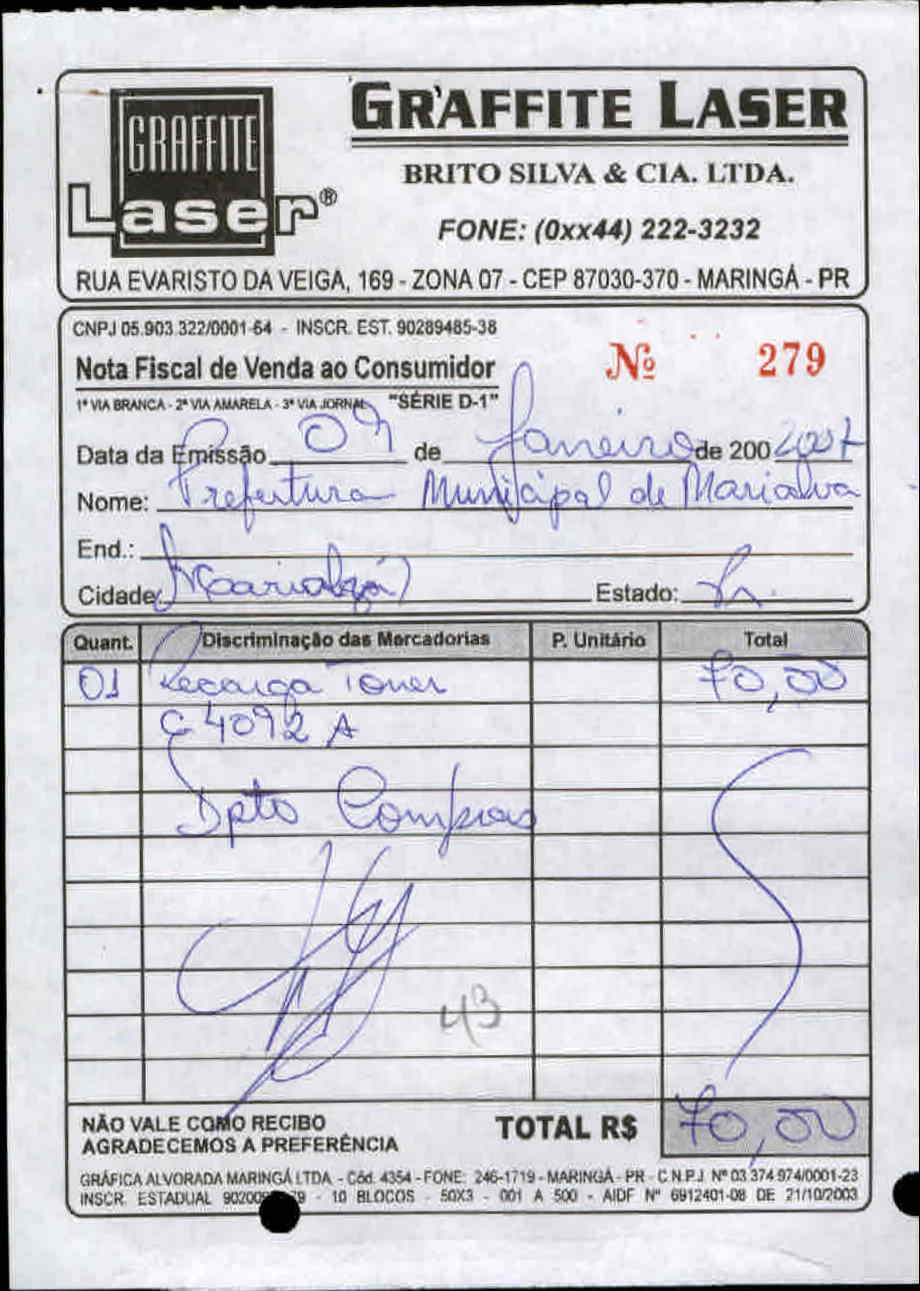 GRAFFITE
Laser®
GRAFFITE LASER
BRITO SILVA & CIA. LTDA.
FONE: (0xx44) 222-3232
RUA EVARISTO DA VEIGA, 169 - ZONA 07 - CEP 87030-370 - MARINGÁ - PR
CNPJ 05.903.322/0001-64 - INSCR. EST. 90289485-38
Nota Fiscal de Venda ao Consumidor
Nº 279
1ª VIA BRANCA - 2ª VIA AMARELA - 3ª VIA JORNAL "SÉRIE D-1"
Data da Emissão 09 de Janeiro de 200 2007
Nome: Prefeitura Municipal de Marialva
End.:
Cidade Marialva Estado: Pr.
Quant. Discriminação das Mercadorias P. Unitário Total
01 Recarga Toner 70,00
C 4092 A
Dpto Compras
43
NÃO VALE COMO RECIBO
AGRADECEMOS A PREFERÊNCIA
TOTAL R$ 70,00
GRÁFICA ALVORADA MARINGÁ LTDA - Cód. 4354 - FONE: 246-1719 - MARINGÁ - PR - C.N.P.J. Nº 03.374.974/0001-23
INSCR. ESTADUAL - 10 BLOCOS - 50X3 - 001 A 500 - AIDF Nº 6912401-08 DE 21/10/2003